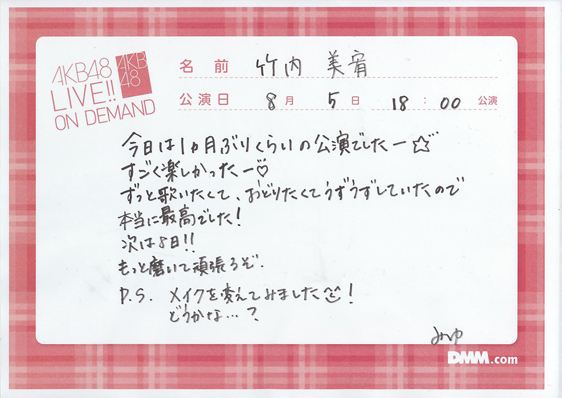 AKB48
LIVE!!
ON DEMAND
AKB
48
名前 竹内 美宥
公演日 8月 5日 18:00 公演
今日は1ヵ月ぶりくらいの公演でしたー☆
すごく楽しかったー♡
ずっと歌いたくて、おどりたくてうずうずしていたので
本当に最高でした!
次は8日!!
もっと磨いて頑張るぞ.
P.S. メイクを変えてみました☺!
どうかな…?
みゆ
DMM.com